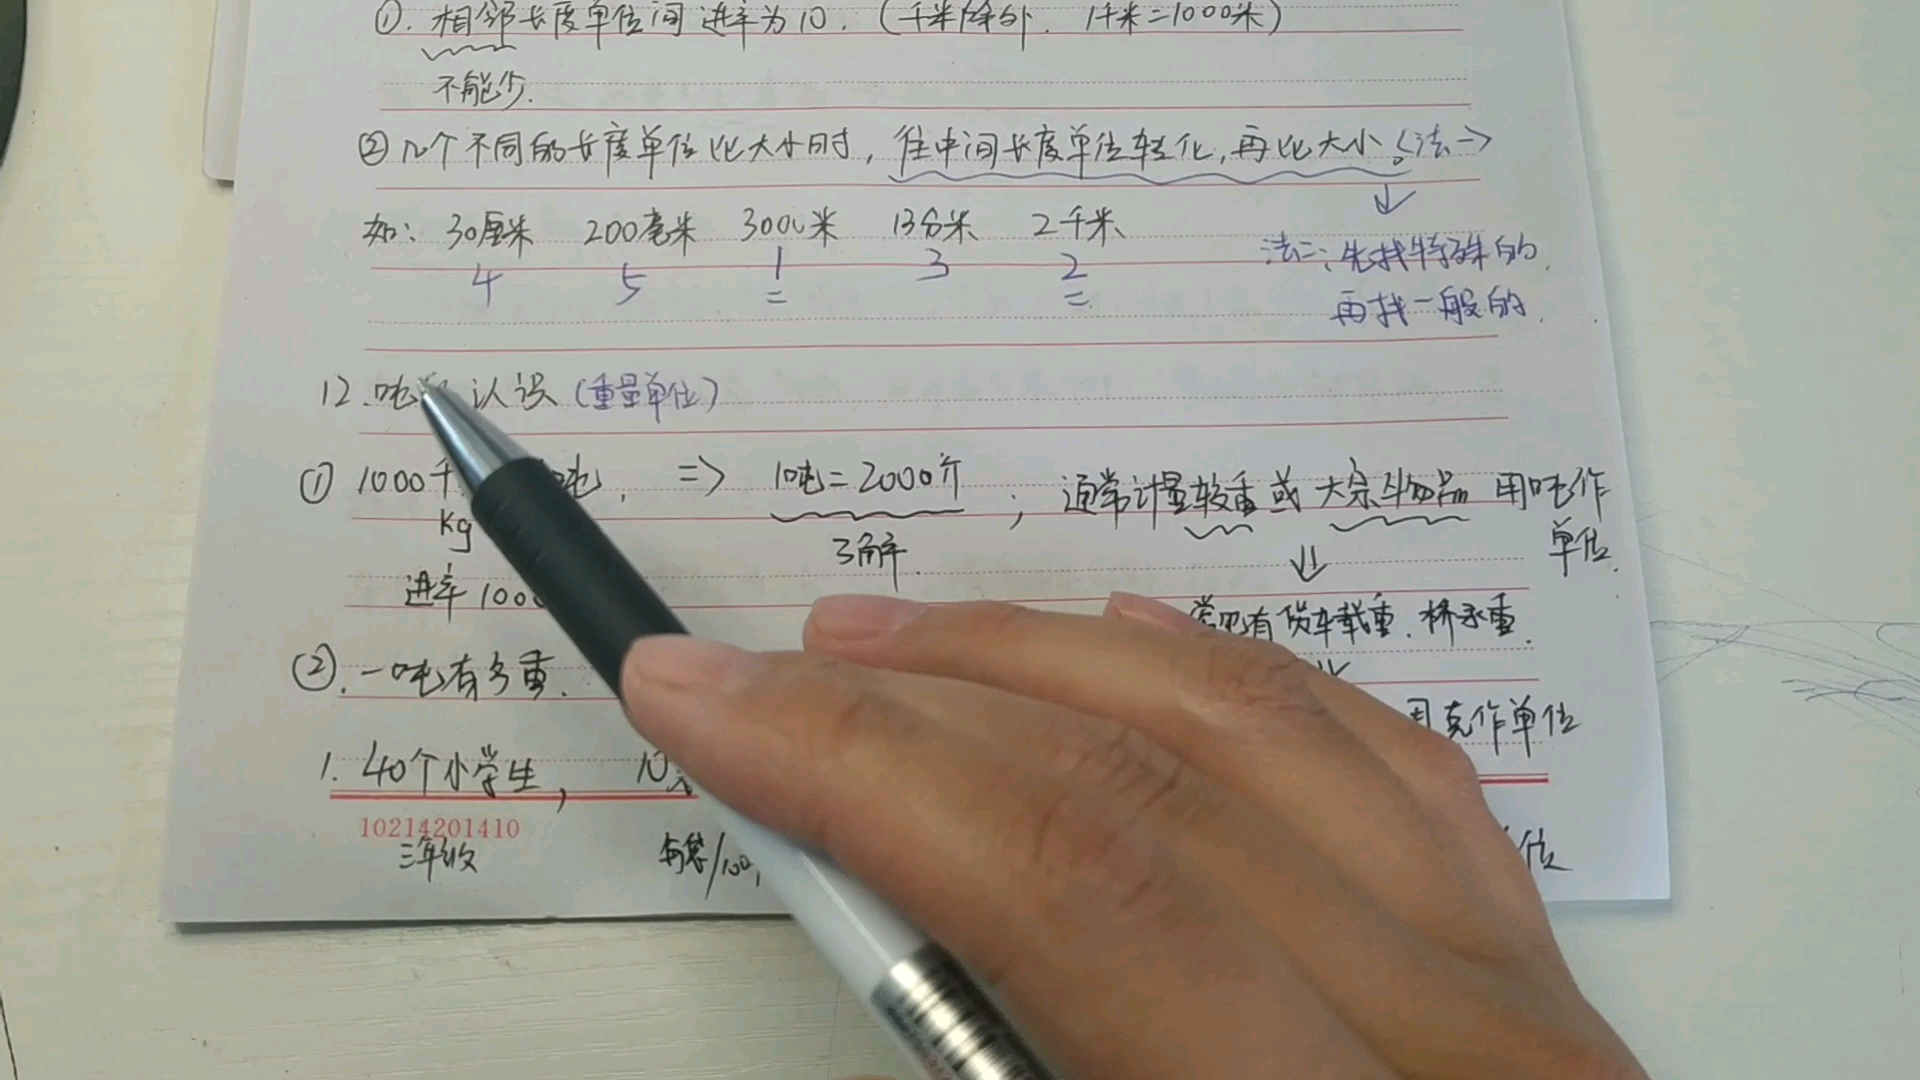 ①.相邻长度单位间进率为10.(千米除外.1千米=1000米)
不能少.
②几个不同的长度单位比大小时,往中间长度单位转化,再比大小。<法一>
如:30厘米 200毫米 3000米 13分米 2千米
4 5 1 3 2
法二:先找特殊的.
再找一般的.
12.吨 认识(重量单位)
① 1000千 吨, => 1吨=2000斤 ; 通常计量较重或大宗物品用吨作
单位.
kg
了解.
进率1000
常见有货车载重.桥承重.
②.一吨有多重.
用克作单位
1. 40个小学生, 10
10214201410
三年级
每袋/100
位